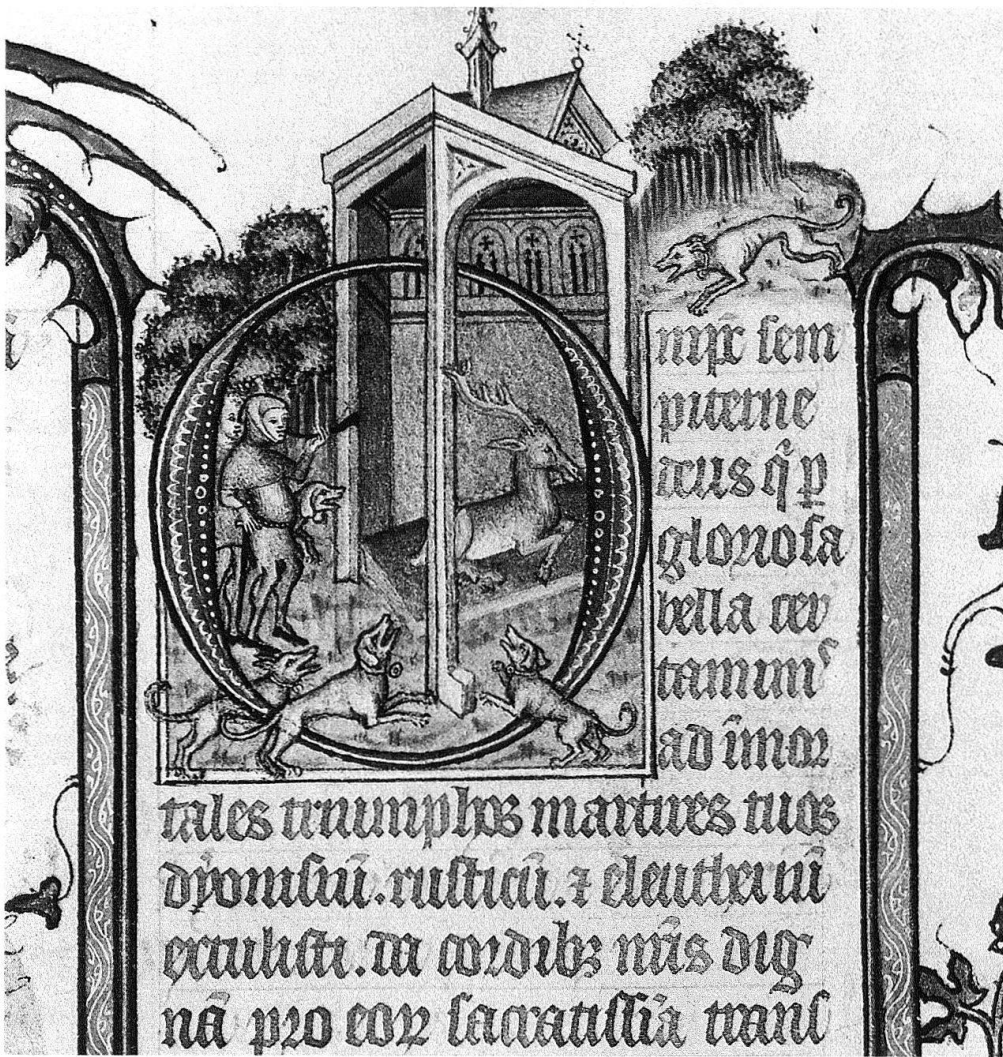 mp̄s sem
piterne
deus q̄ ꝑ
gloriosa
bella cer
taminis
ad īmor
tales triumphos martires tuos
dyonisiū. rusticū. ⁊ eleutheriū
extulisti. da cordibꝫ nr̄is dig
nā pro eoꝝ sacratissīā trans